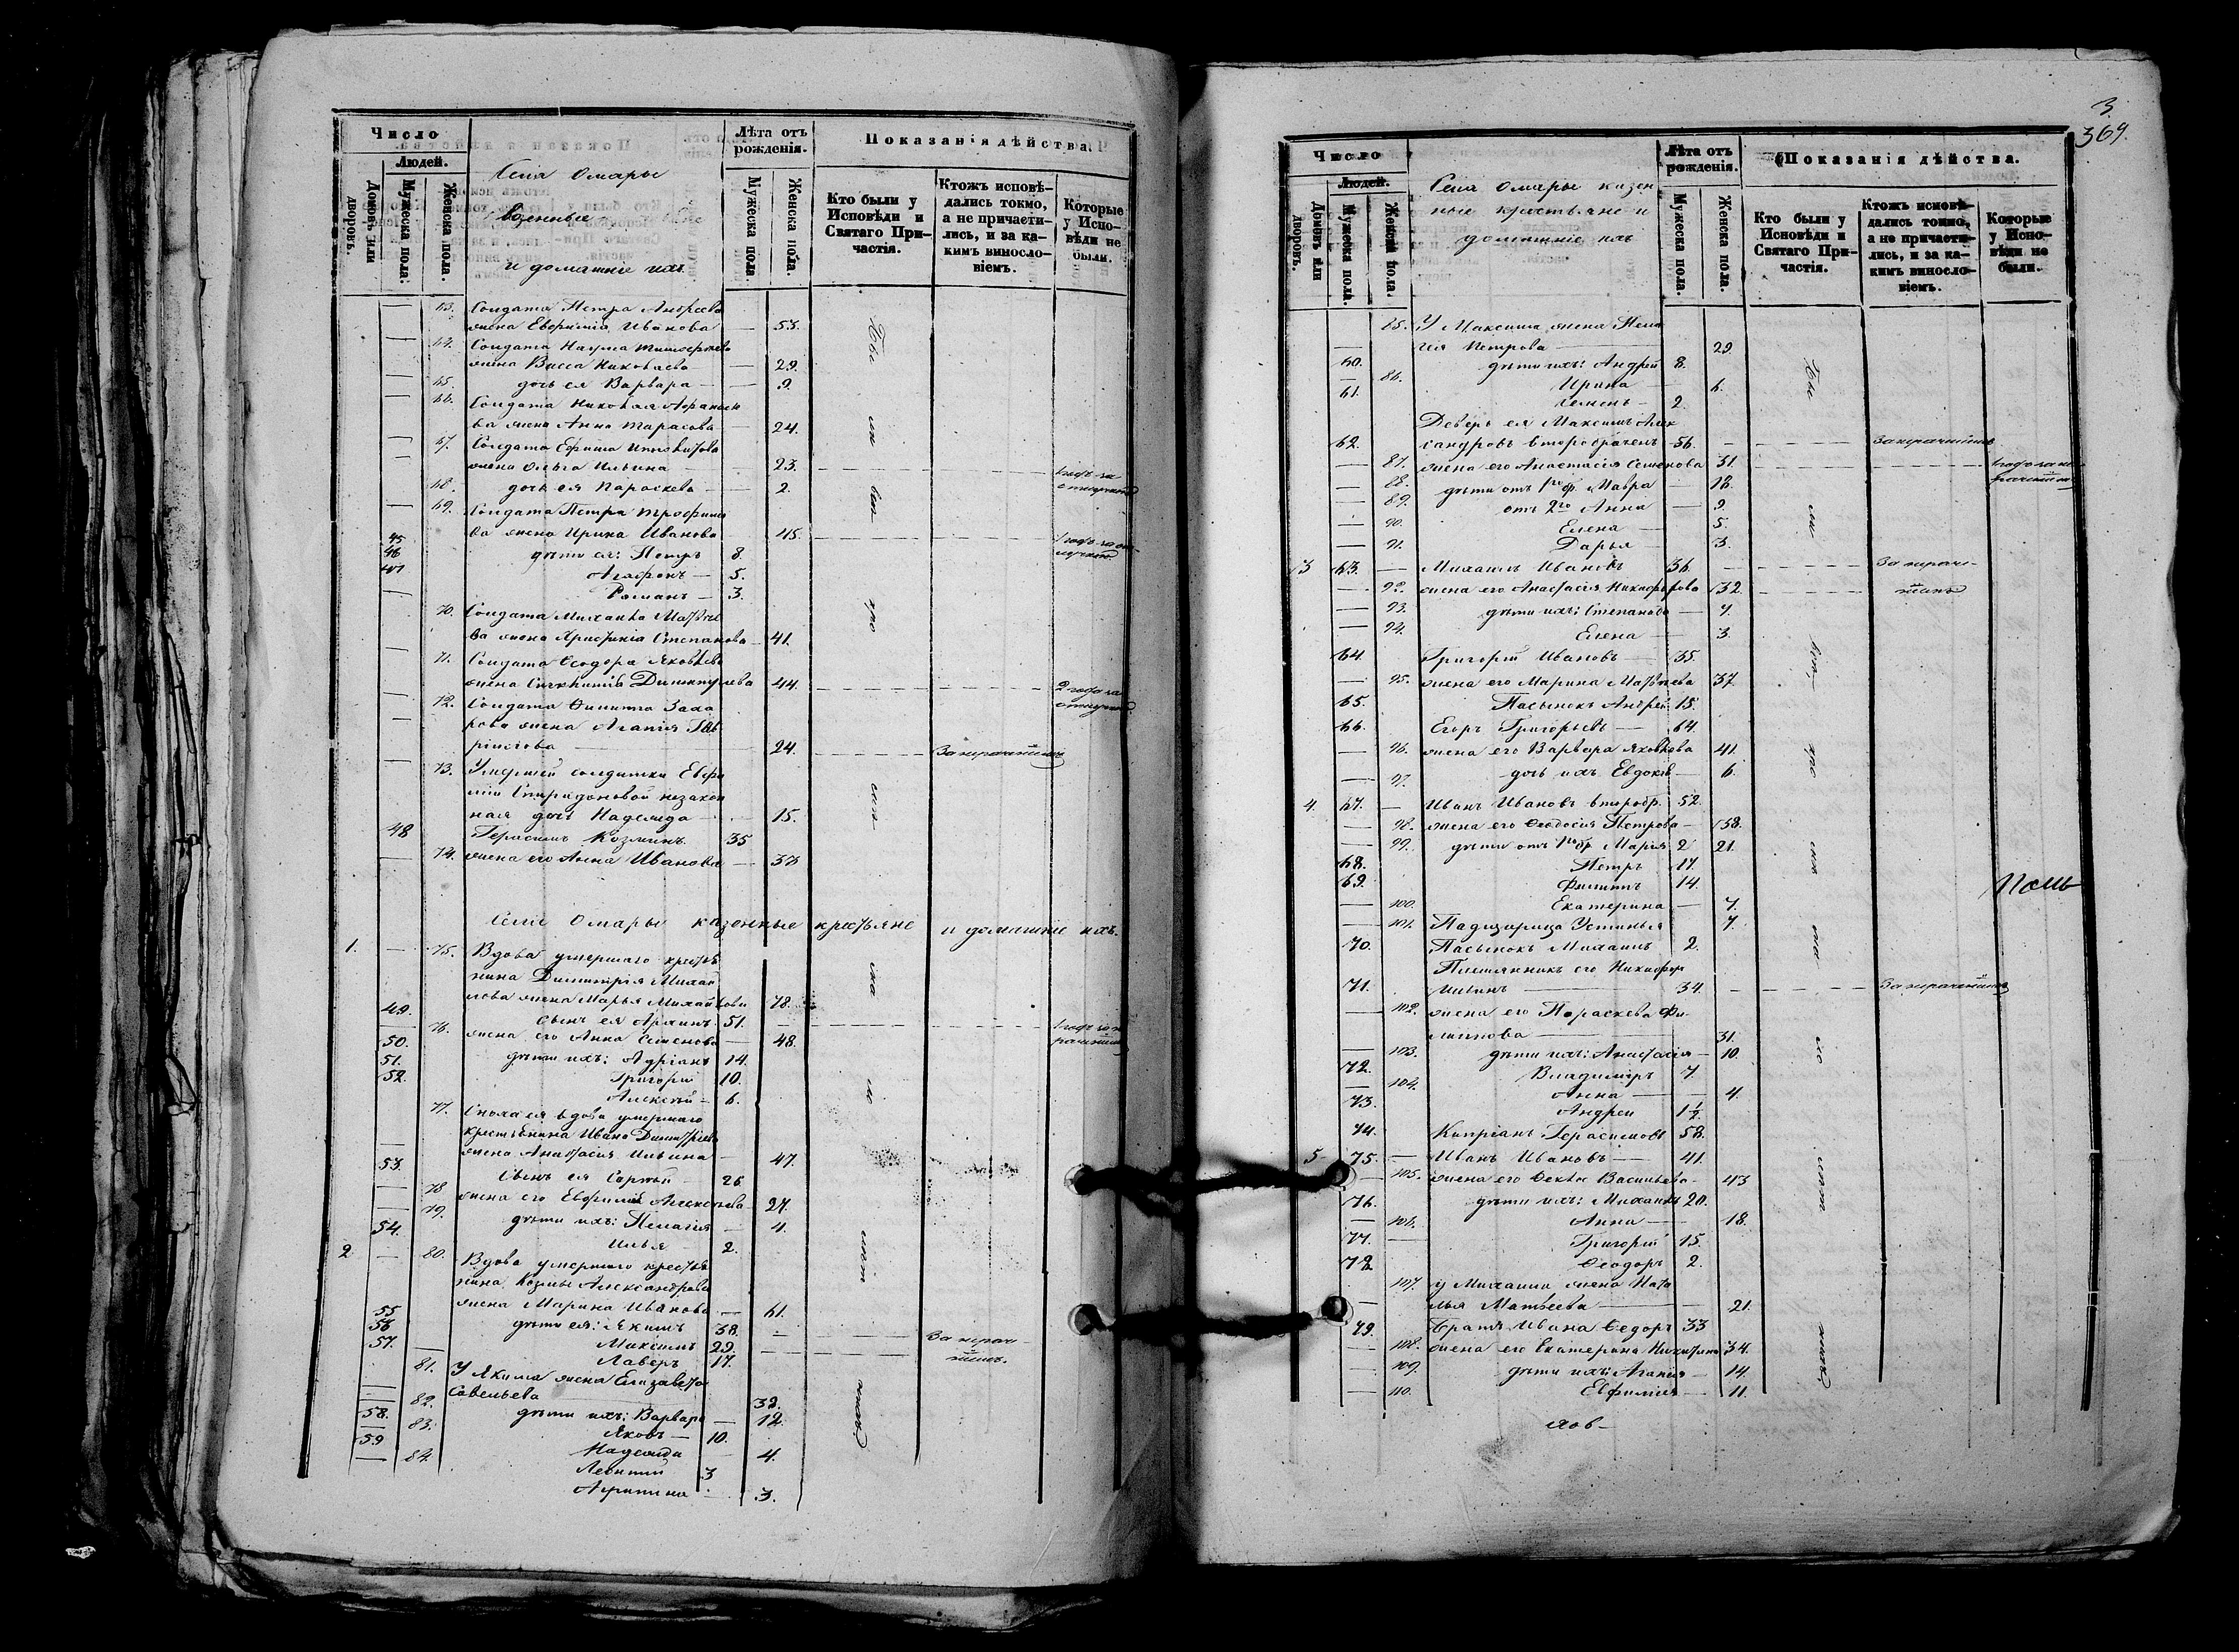 Число
Людей.
Домовъ или дворовъ.
Мужеска пола.
Женска пола.
Села Омары
военные
и домашніе ихъ
Лѣта отъ рожденія.
Мужеска пола
Женска пола.
Показанія дѣйства.
Кто были у Исповѣди и Святаго Причастія.
Ктожъ исповѣдались токмо, а не причастились, и за какимъ винословіемъ.
Которые у Исповѣди не были.
63. Солдата Петра Андреева
жена Евфимія Иванова — 53.
64. Солдата Наума Тимофеева
жена Васса Николаева — 29.
65. дочь ея Варвара — 9.
66. Солдата Николая Афанасье
ва жена Анна Тарасова — 24.
67. Солдата Ефима
жена Ольга Ильина — 23.
68. дочь ея Параскева — 2.
69. Солдата Петра Трофимо
ва жена Ирина Иванова — 45.
45 дѣти ея: Петръ 8.
46 Агафонъ — 5.
47 Романъ — 3.
70. Солдата Михаила Матвѣе
ва жена Христинія Степанова 41.
71. Солдата Ѳеодора Яковлева
жена Димитріева 44. 2 года за
72. Солдата Филиппа Заха
рова жена Агапія Гав
рилова — 24. За нерачениемъ
73. Умершей солдатки Евфи
міи Спиридоновой незакон
ная дочь Надежда — 15.
48 Герасимъ Козминъ 35
74. жена его Анна Иванова — 37
Села Омары казенные крестьяне и домашніе ихъ.
1. — 75. Вдова умершаго крестья
нина Димитрія Михаи
лова жена Марья Михайлова 78.
49. сынъ ея 51.
76. жена его Анна Семенова — 48.
50. дѣти ихъ: Адріанъ 14.
51. Григорій 10.
52. Алексѣй — 6.
77. Сноха ея вдова умершаго
крестьянина Ивана Димитріева
жена Анастасія Ильина — 47.
53. Сынъ ея Сергѣй — 26
78 жена его Евфимія Алексѣева — 27.
79. дѣти ихъ: Пелагія — 4.
54. Илья — 2.
2 — 80. Вдова умершаго крестья
нина Козмы Александрова
жена Марина Иванова — 61.
55 дѣти ея: Якимъ 38.
56 Максимъ 29.
57. Лаверъ 17.
81. У Якима жена Елизавета
Савельева 32.
82. дѣти ихъ: Варвара — 12.
58. Яковъ — 10.
83. Надежда — 4.
59 Леонтій 3
84. Агрипина — 3.
Бы ли
3.
369.
Число
Людей.
Домовъ или дворовъ.
Мужеска пола.
Женска пола.
Села Омары казен
ные крестьяне и
домашніе ихъ
Лѣта отъ рожденія.
Мужеска пола.
Женска пола.
Показанія дѣйства.
Кто были у Исповѣди и Святаго Причастія.
Ктожъ исповѣдались токмо, а не причастились, и за какимъ винословіемъ.
Которые у Исповѣди не были.
85. У Максима жена Пела
гея Петрова — 29.
60. дѣти ихъ: Андрей 8.
86. Ирина — 6.
61. Семенъ — 2.
Деверь ея Максимъ Алек
62. сандровъ второбраченъ 56. За нерачениемъ
87. жена его Анастасія Семенова 31.
88. дѣти отъ 1го б. Мавра — 18.
89. отъ 2го Анна — 9.
90. Елена — 5.
91. Дарья — 3.
3 63. — Михаилъ Ивановъ 36.
92. жена его Анастасія Никифорова 32.
93. дѣти ихъ: Степанида — 7.
94. Елена — 3.
64. Григорій Ивановъ — 35.
95. жена его Марина Матвѣева 37.
65. Пасынокъ Андрей 15.
66. Егоръ Григорьевъ — 64.
96. жена его Варвара Яковлева 41.
97. дочь ихъ Евдокія — 6.
4. 67. — Иванъ Ивановъ второбр. 52.
98. жена его Ѳеодосія Петрова — 38.
99. дѣти отъ 1го бр. Марія 21.
68. Петръ 17.
69. Филиппъ 14.
100. Екатерина — 7.
101. Падчерица Устинья 7.
70. Пасынокъ Михаилъ 2.
Племянникъ его Никифоръ
71. Ильинъ — 34. За нерачениемъ
102. жена его Параскева Фи
липпова — 31.
103. дѣти ихъ: Анастасія — 10.
72. Владиміръ 7.
104. Анна — 4.
73. Андрей 1½.
74. Кипріанъ Герасимовъ 58.
5 75. — Иванъ Ивановъ — 41.
105. жена его Ѳекла Васильева — 43
76. дѣти ихъ: Михаилъ 20.
106. Анна — 18.
77. Григорій 15.
78 Ѳеодоръ 2.
107. у Михаила жена Ната
лья Матвеева — 21.
79. Братъ Ивана Ѳедоръ 33
108. жена его Екатерина Никитина 34.
109. дѣти ихъ: Агапія — 14.
110. Евфимія — 11.